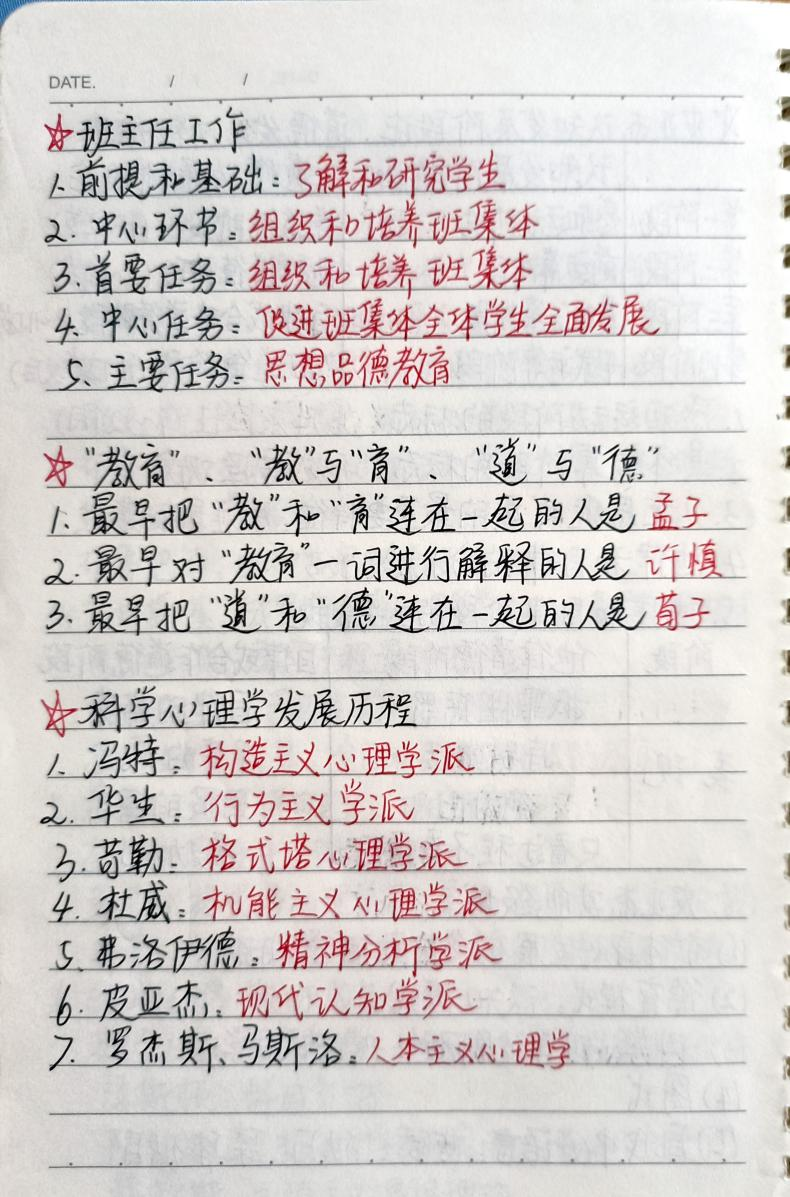 DATE. / /
☆班主任工作
1. 前提和基础：了解和研究学生
2. 中心环节：组织和培养班集体
3. 首要任务：组织和培养班集体
4. 中心任务：促进班集体全体学生全面发展
5. 主要任务：思想品德教育
☆“教育”、“教”与“育”、“道”与“德”
1. 最早把“教”和“育”连在一起的人是 孟子
2. 最早对“教育”一词进行解释的人是 许慎
3. 最早把“道”和“德”连在一起的人是 荀子
☆科学心理学发展历程
1. 冯特：构造主义心理学派
2. 华生：行为主义学派
3. 苛勒：格式塔心理学派
4. 杜威：机能主义心理学派
5. 弗洛伊德：精神分析学派
6. 皮亚杰：现代认知学派
7. 罗杰斯、马斯洛：人本主义心理学